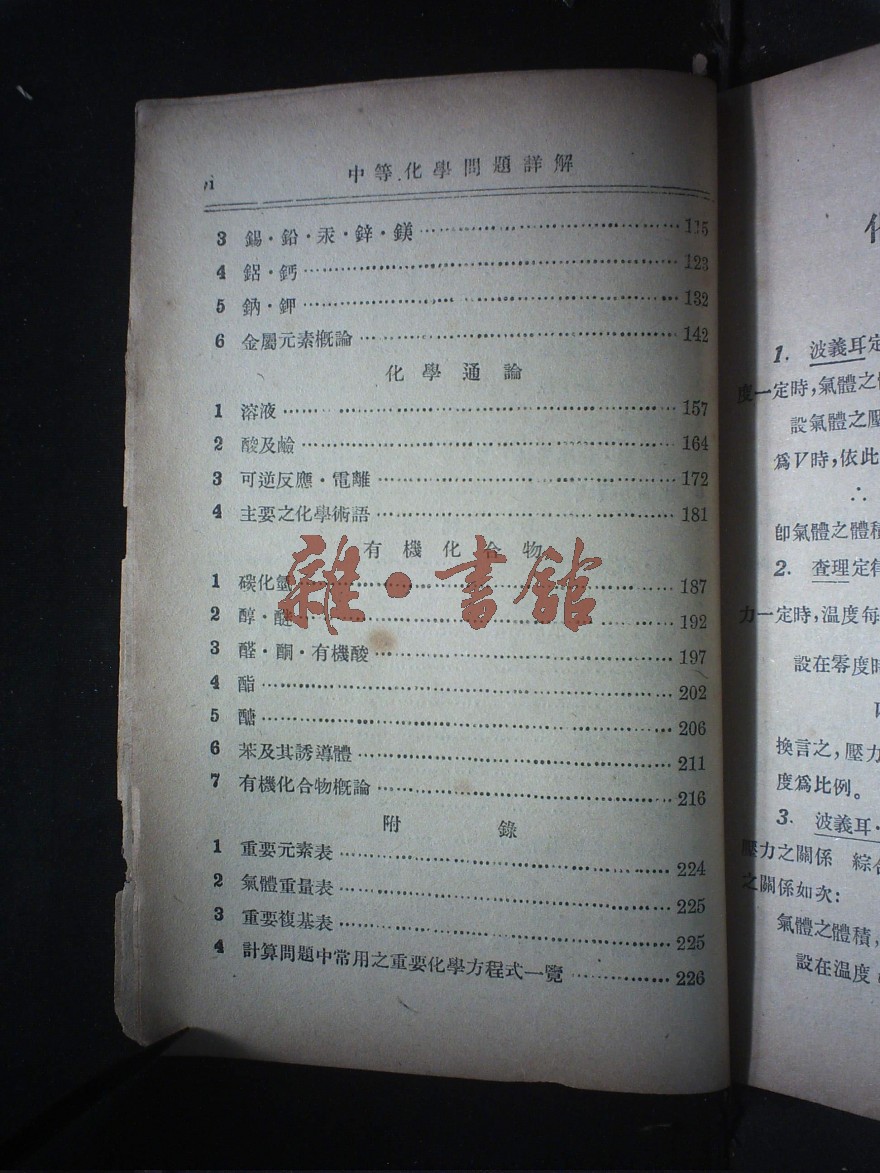 vi 中等化學問題詳解
3 錫·鉛·汞·鋅·鎂 115
4 鋁·鈣 123
5 鈉·鉀 132
6 金屬元素概論 142
化學通論
1 溶液 157
2 酸及鹼 164
3 可逆反應·電離 172
4 主要之化學術語 181
有機化合物
1 碳化氫 187
2 醇·醚 192
3 醛·酮·有機酸 197
4 酯 202
5 醣 206
6 苯及其誘導體 211
7 有機化合物概論 216
附錄
1 重要元素表 224
2 氣體重量表 225
3 重要複基表 225
4 計算問題中常用之重要化學方程式一覽 226
雜·書館
1. 波義耳定
度一定時,氣體之
設氣體之壓
爲V時,依此
∴
卽氣體之體積
2. 查理定律
力一定時,溫度每
設在零度時
換言之,壓力
度爲比例。
3. 波義耳·
壓力之關係 綜合
之關係如次:
氣體之體積,
設在溫度